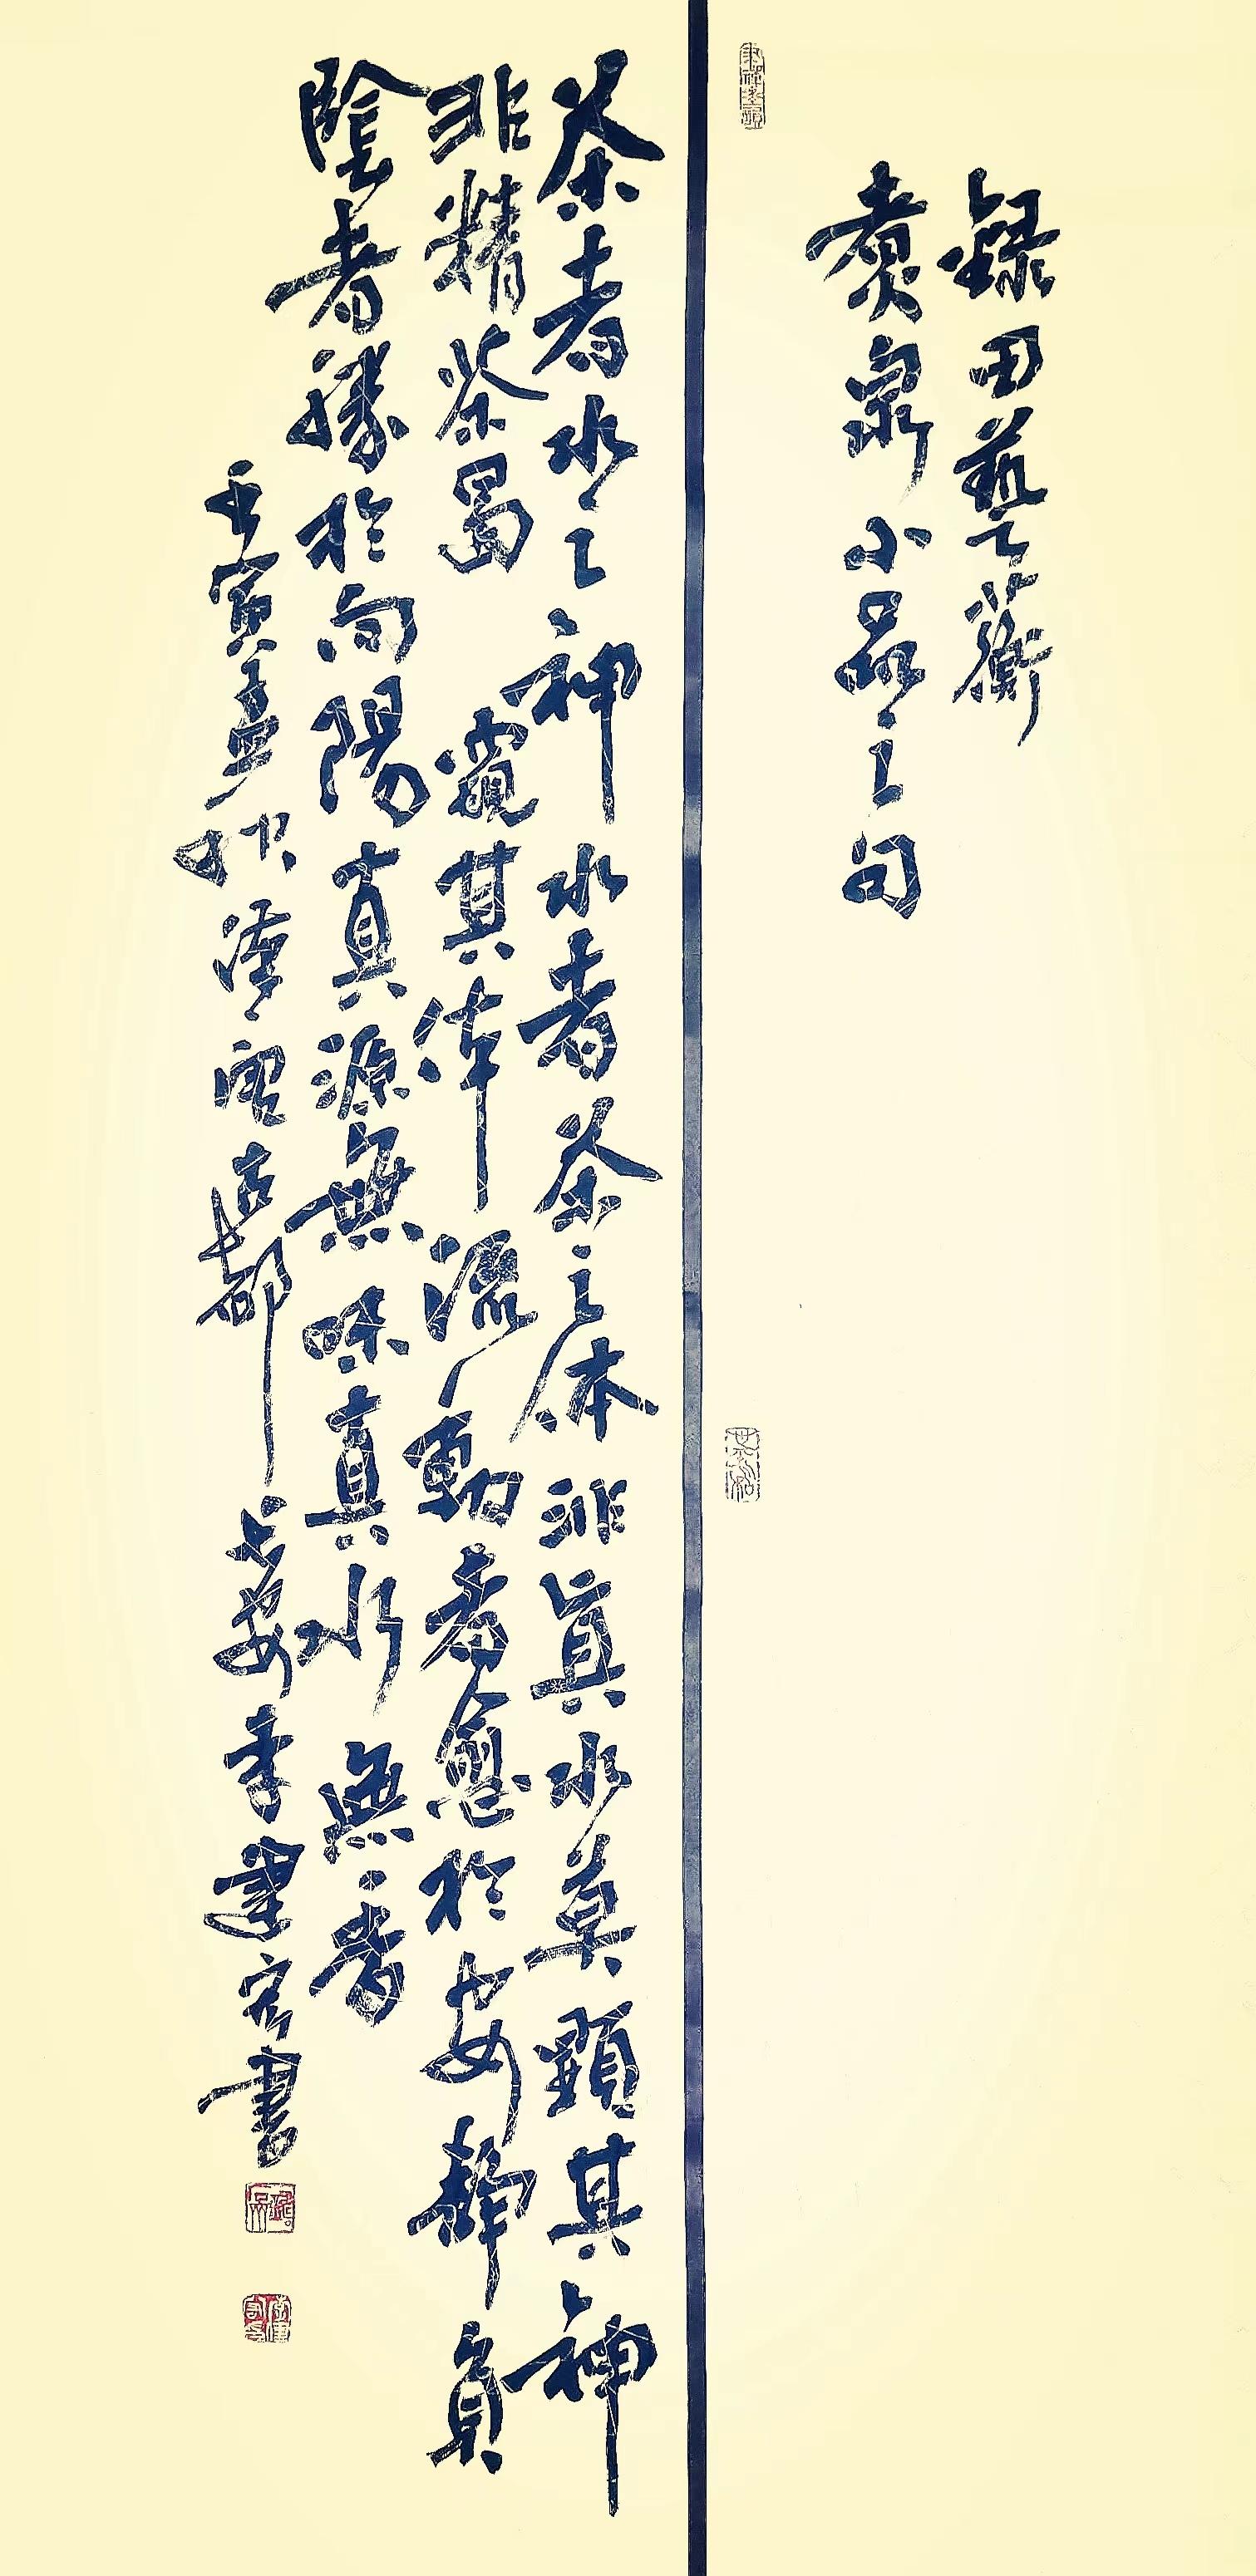 錄田藝蘅
煮泉小品之句
茶者水之神水者茶之体非眞水莫顯其神
非精茶曷窺其体流動者愈於安靜負
陰者勝於向陽真源無味真水無香
壬寅孟秋漢古都长安李建書